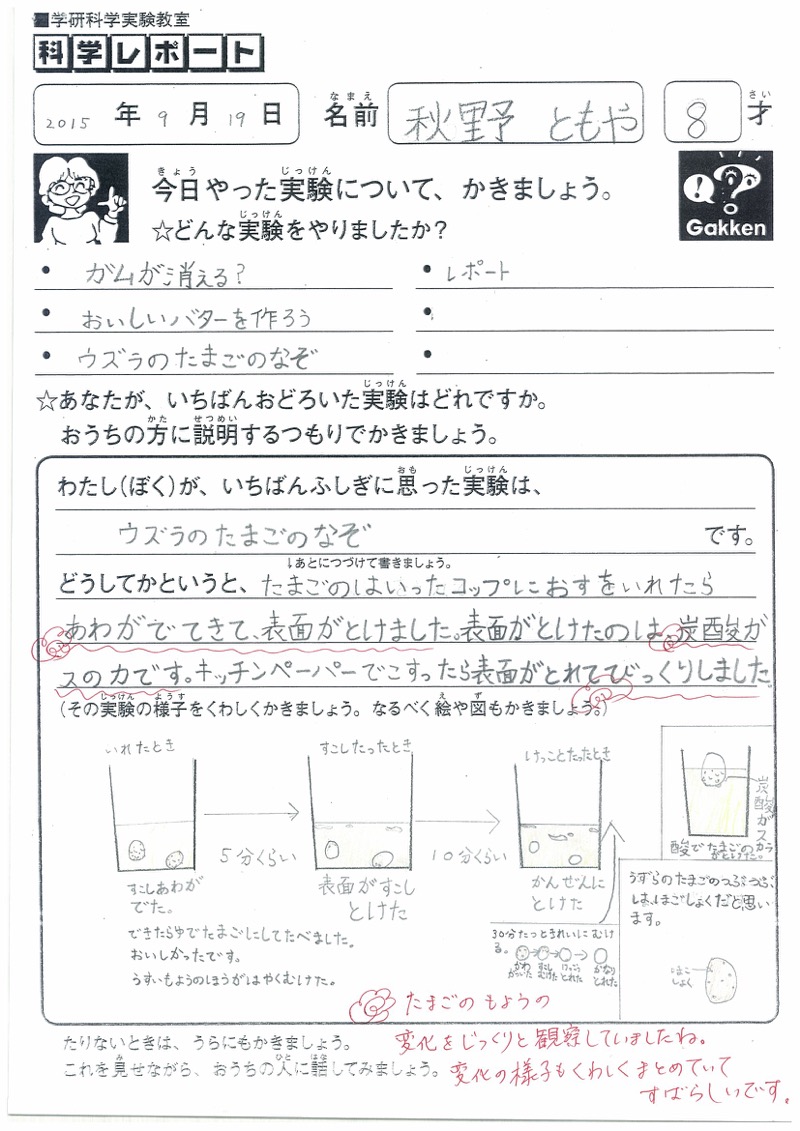 ■学研科学実験教室
科学レポート
2015 年 9 月 19 日 名前 なまえ 秋里予 ともや 8 才 さい
今日やった実験について、かきましょう。
きょう じっけん
☆どんな実験をやりましたか？
じっけん
Gakken
• ガムが消える？
• おいしいバターを作ろう
• ウズラのたまごのなぞ
• レポート
•
•
☆あなたが、いちばんおどろいた実験はどれですか。
じっけん
おうちの方に説明するつもりでかきましょう。
かた せつめい
わたし（ぼく）が、いちばんふしぎに思った実験は、
おも じっけん
ウズラのたまごのなぞ です。
↓あとにつづけて書きましょう。
どうしてかというと、たまごのはいったコップにおすをいれたら
あわがでてきて、表面がとけました。表面がとけたのは、炭酸が
スの力です。キッチンペーパーでこすったら表面がとれてびっくりしました
（その実験の様子をくわしくかきましょう。なるべく絵や図もかきましょう。）
じっけん ようす え ず
いれたとき
すこしたったとき
けっことたったとき
5分くらい
10分くらい
すこしあわが
でた。
表面がすこし
とけた
かんぜんに
とけた
できたらゆでたまごにしてたべました。
おいしかったです。
うすいもようのほうがはやくむけた。
30分たつときれいにむけ
る。
すこし
むけた
けっこう
とれた
かなり
とれた
炭酸ガス
酸でたまごのカラ
がとけた。
うずらのたまごのつぶつぶ
は、ほごしょくだと思い
ます。
ほご
しょく
たまごの もようの
変化をじっくりと観察していましたね。
変化の様子もくわしくまとめていて
すばらしいです。
たりないときは、うらにもかきましょう。
これを見せながら、おうちの人に話してみましょう。
み ひと はな